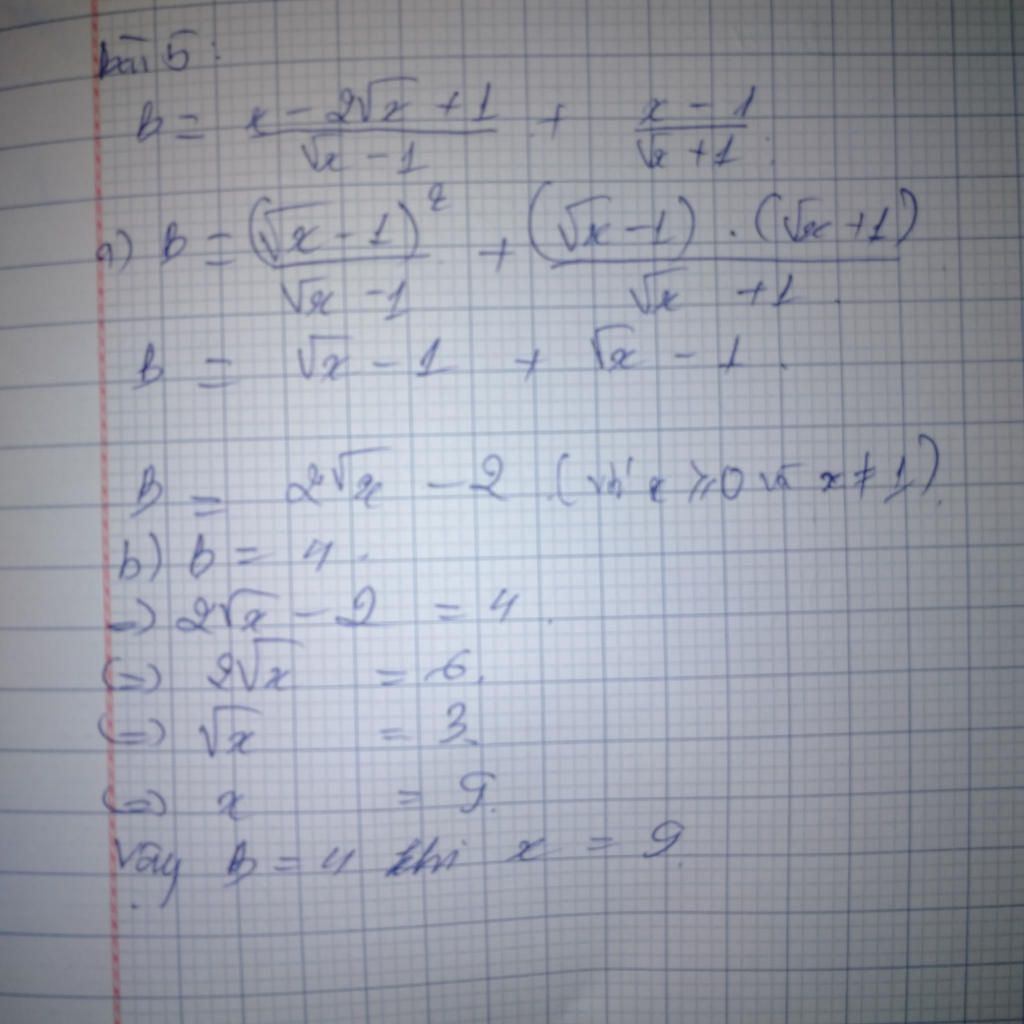 bài 5:
B = x - 2√x + 1 / √x - 1 + x - 1 / √x + 1.
a) B = (√x - 1)² / √x - 1 + (√x - 1) . (√x + 1) / √x + 1.
B = √x - 1 + √x - 1.
B = 2√x - 2 (với x ≥ 0 và x ≠ 1).
b) B = 4.
=) 2√x - 2 = 4.
(=) 2√x = 6.
(=) √x = 3.
(=) x = 9.
Vậy B = 4 khi x = 9.